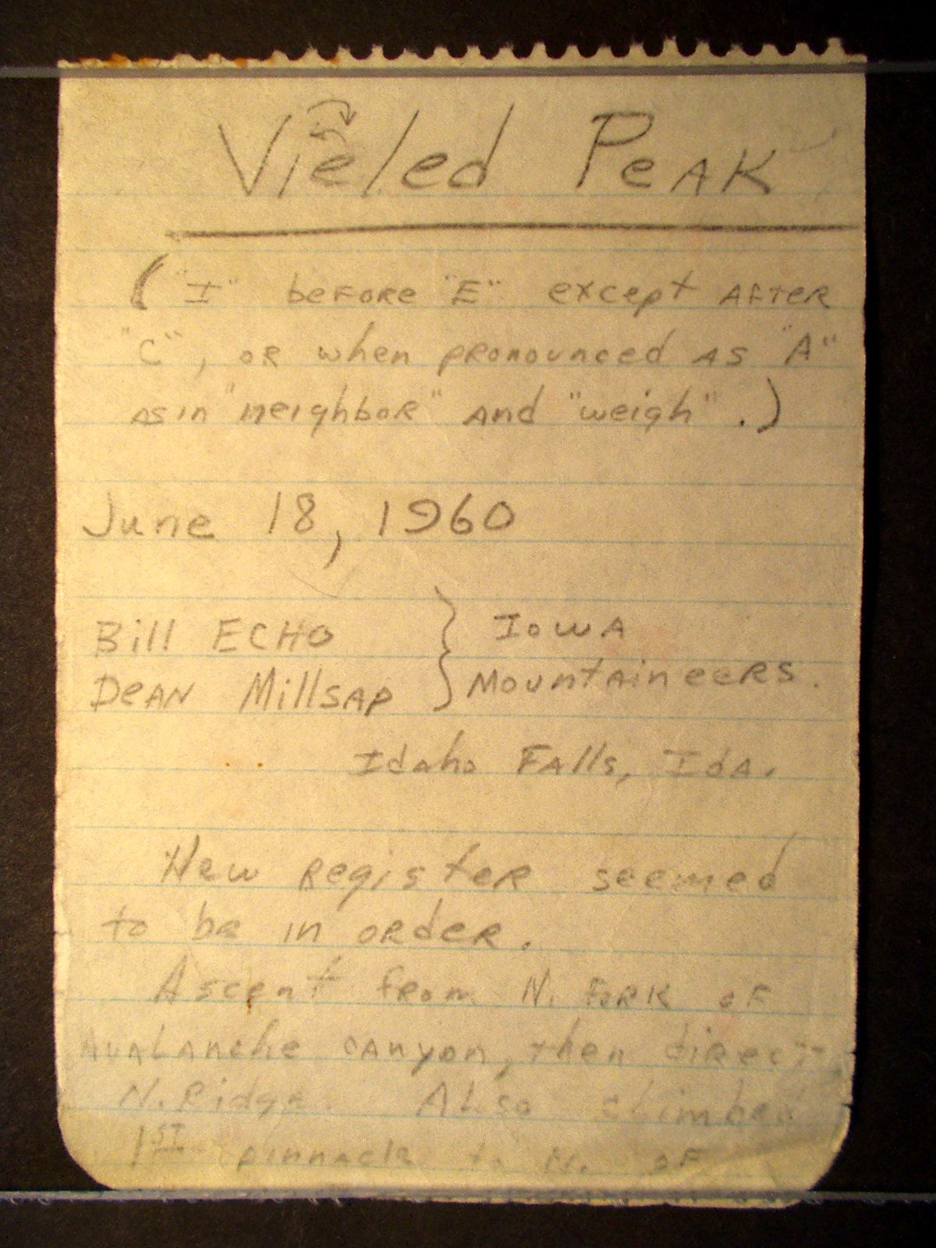 Vieled Peak
("I" before "E" except after
"C", or when pronounced as "A"
as in "neighbor" and "weigh".)
June 18, 1960
Bill Echo } Iowa
Dean Millsap } Mountaineers.
Idaho Falls, Ida.
New register seemed
to be in order.
Ascent from N. Fork of
Avalanche canyon, then direct
N. Ridge. Also climbed
1st pinnacle to N. of